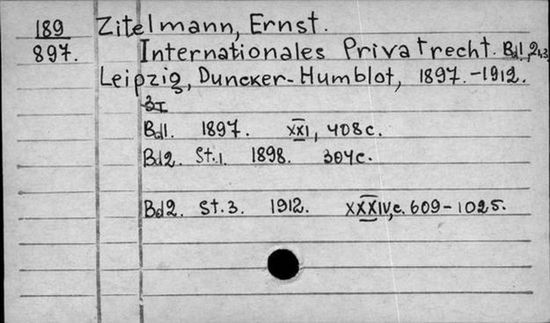 189 Zitelmann, Ernst.
897. Internationales Privatrecht. Bd1,2,3
Leipzig, Duncker-Humblot, 1897.-1912.
Bd1. 1897. XXI, 408c.
Bd2. St.1. 1898. 304c.
Bd2. St.3. 1912. XXXIV,c. 609-1025.